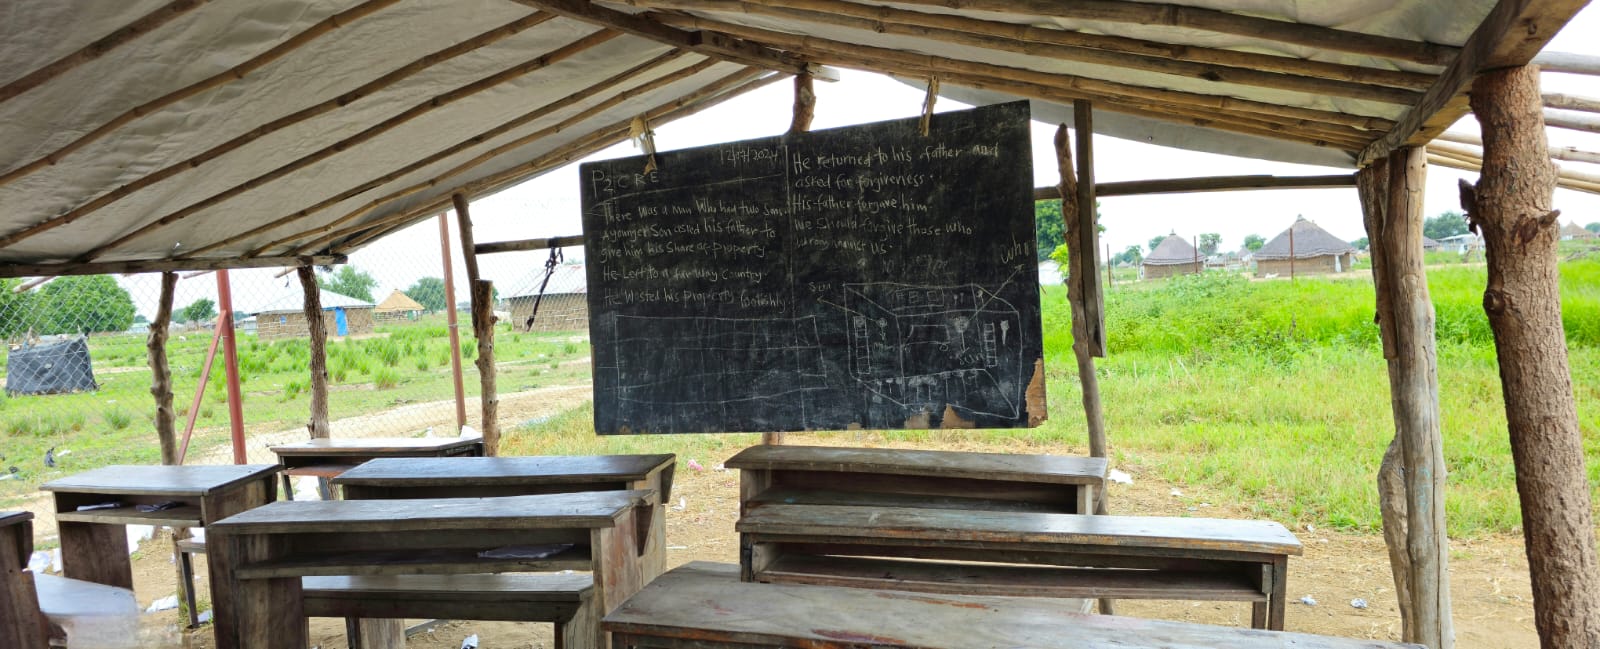 12/07/2024
P2 CRE
There was a man who had two sons.
A younger Son asked his father to
give him his share of property.
He Left to a far way country.
He wasted his property foolishly
He returned to his father and
asked for forgiveness.
His father forgave him.
We should forgive those who
wrong against us.
Sun